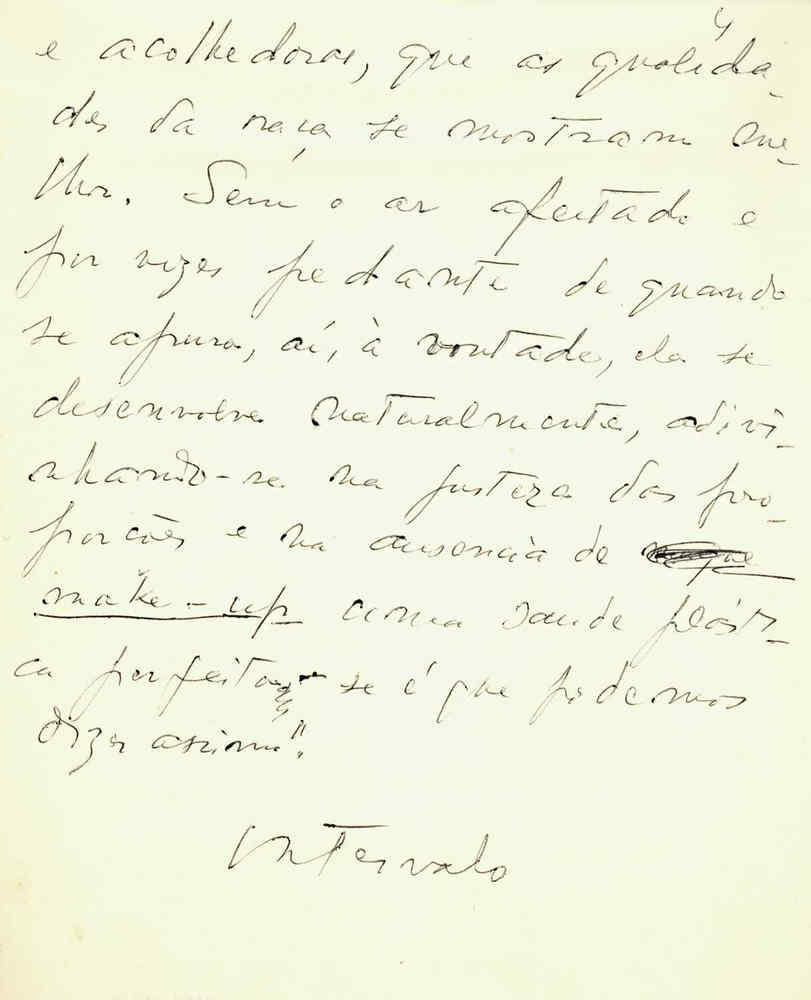 4
e acolhedoras, que as qualida-
des da raça se mostram me-
lhor. Sem o ar afeitado e
por vezes pedante de quando
se apura, aí, à vontade, ela se
desenvolve naturalmente, adivi-
nhando-se na justeza das pro-
porções e na ausencia de
make-up uma saude plásti-
ca perfeita - se é que podemos
dizer assim".
Intervalo